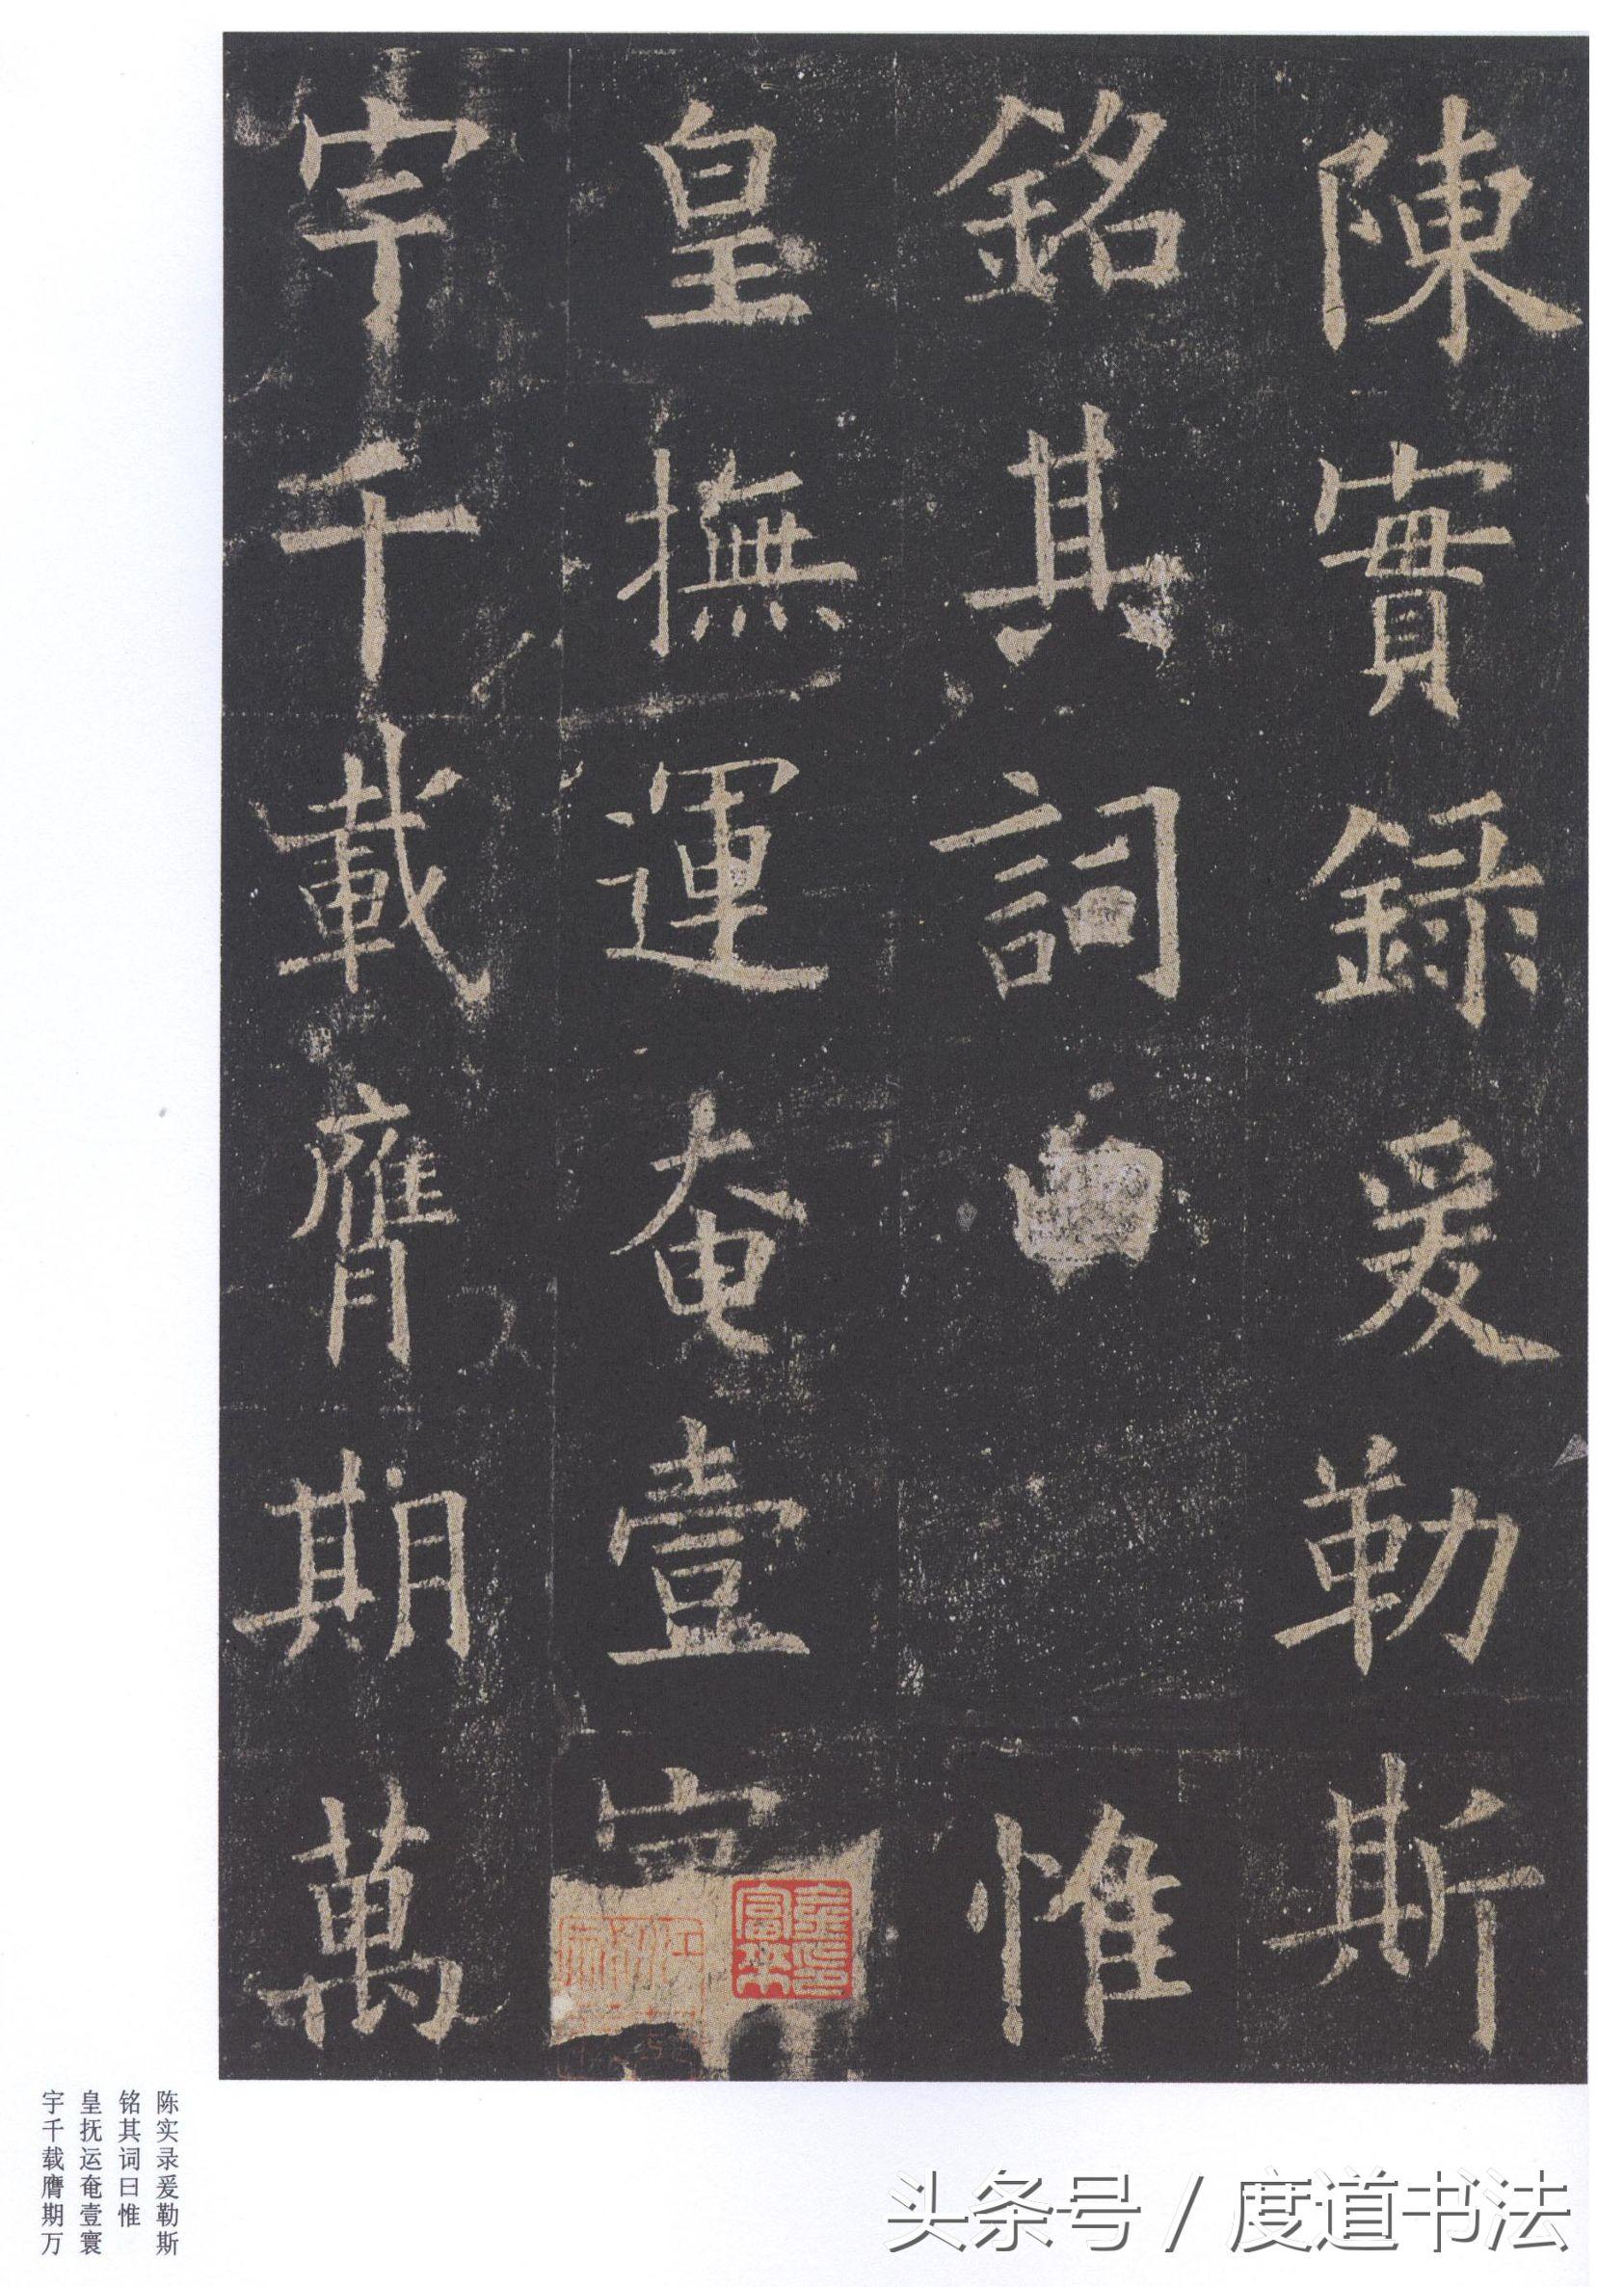 陳實録爰勒斯
銘其詞曰惟
皇撫運奄壹寰
宇千載膺期萬
陈实录爰勒斯
铭其词曰惟
皇抚运奄壹寰
宇千载膺期万
头条号 / 度道书法